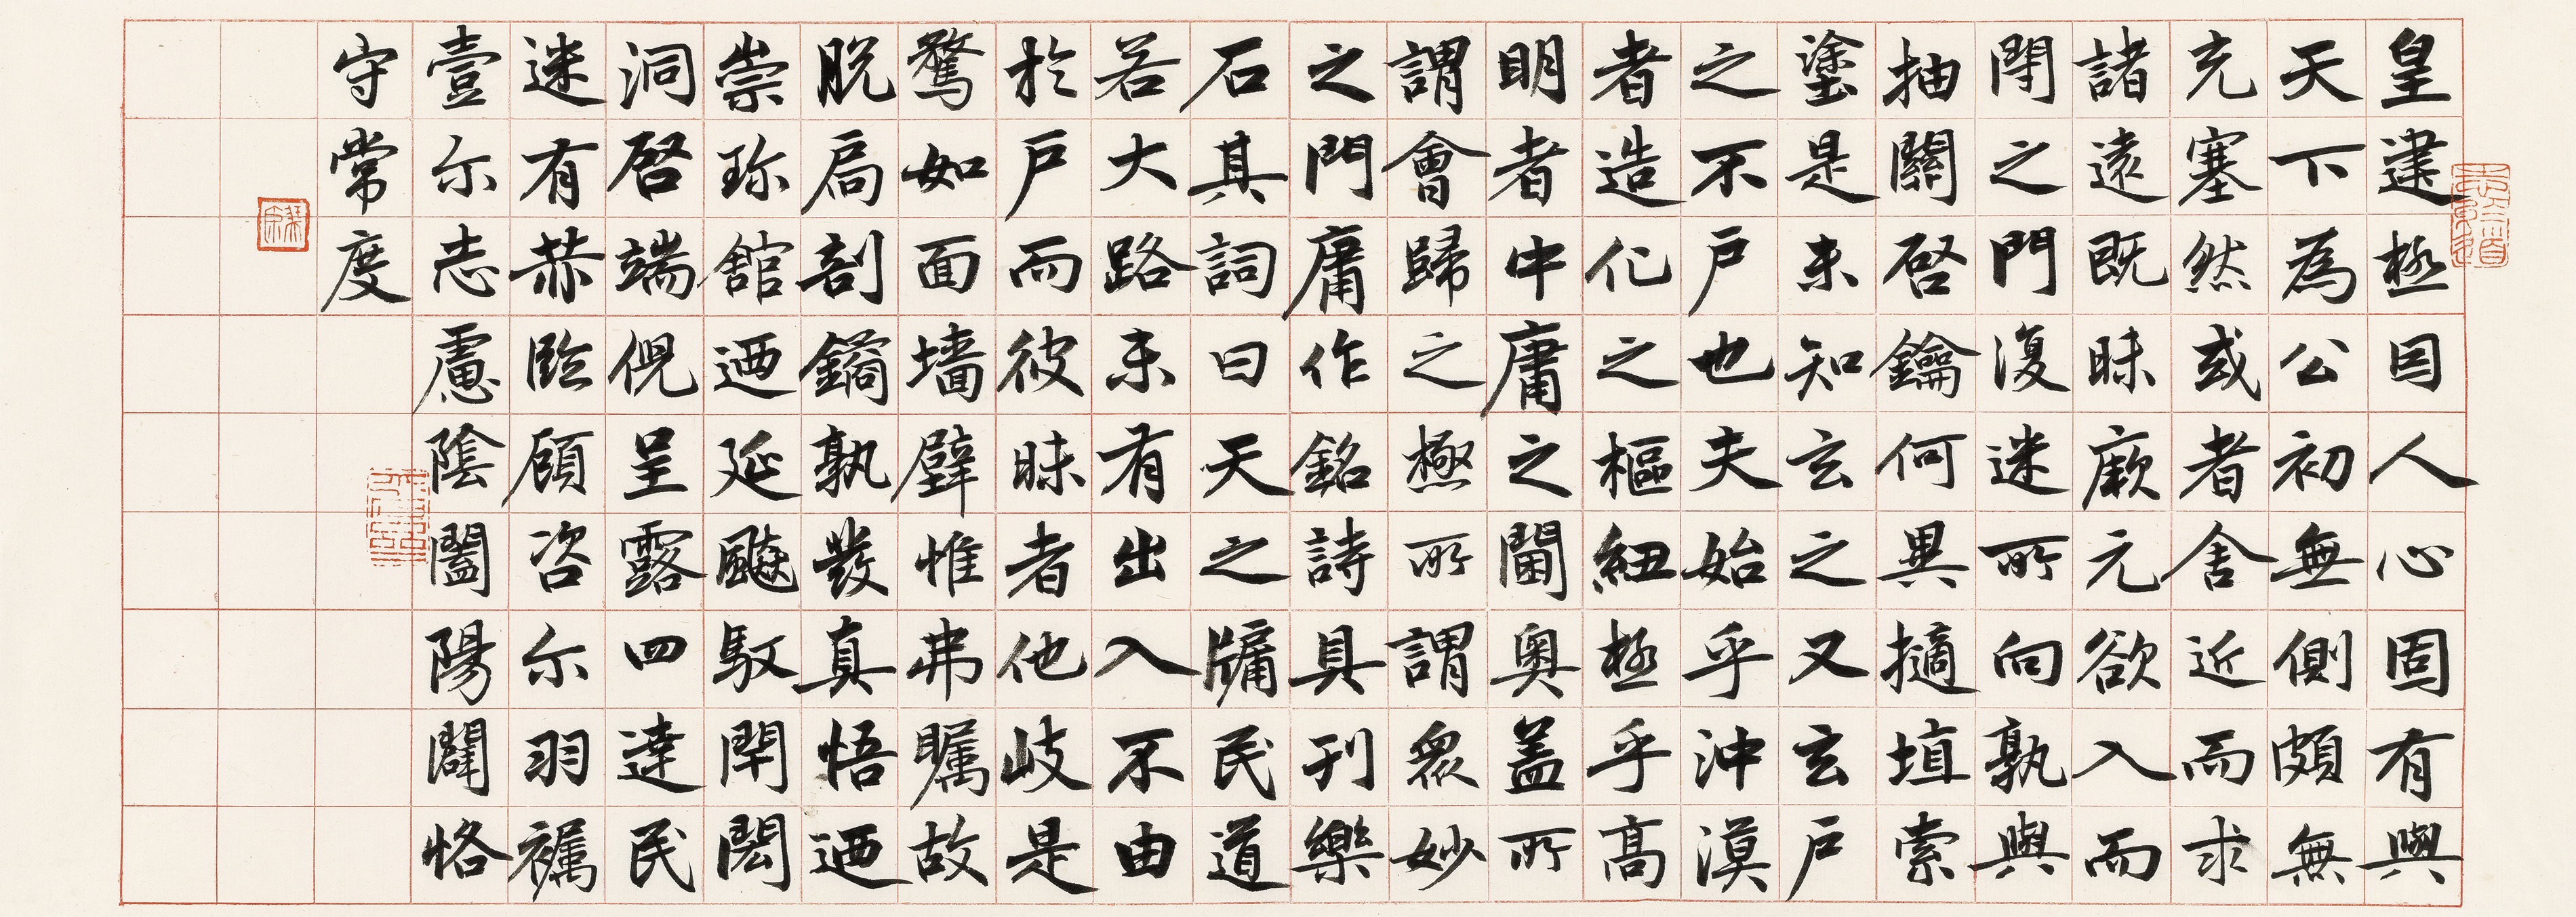 皇建極自人心固有與
天下為公初無側頗無
充塞然或者舍近而求
諸遠既昧厥元欲入而
閉之門復迷所向孰與
抽關啓鑰何異擿埴索
塗是未知玄之又玄戶
之不戶也夫始乎沖漠
者造化之樞紐極乎高
明者中庸之閫奧蓋所
謂會歸之極所謂眾妙
之門庸作銘詩具刊樂
石其詞曰天之牖民道
若大路未有出入不由
於戶而彼昧者他岐是
騖如面墻壁惟弗矚故
脫扃剖鐍孰發真悟迺
崇珍館迺延飈馭閈閎
洞啓端倪呈露四達民
迷有赫臨顧咨尓羽襦
壹尓志慮陰闔陽闢恪
守常度